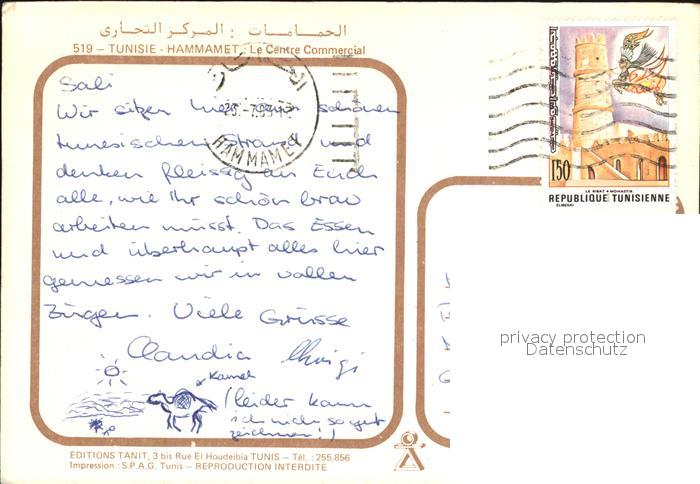 الحمامات : المركز التجارى
519 – TUNISIE - HAMMAMET : Le Centre Commercial
Sali
Wir sitzen hier am schönen
tunesischen Strand und
denken fleissig an Euch
alle, wie Ihr schön brav
arbeiten müsst. Das Essen
und überhaupt alles hier
geniessen wir in vollen
Zügen. Viele Grüsse
Claudia
Kamel
(leider kann
ich nicht so gut
zeichnen!)
HAMMAMET
150
LE RIBAT • MONASTIR
REPUBLIQUE TUNISIENNE
ELMEKKI
privacy protection
Datenschutz
EDITIONS TANIT, 3 bis Rue El Houdeibia TUNIS – Tél. : 255.856
Impression : S.P.A.G. Tunis – REPRODUCTION INTERDITE